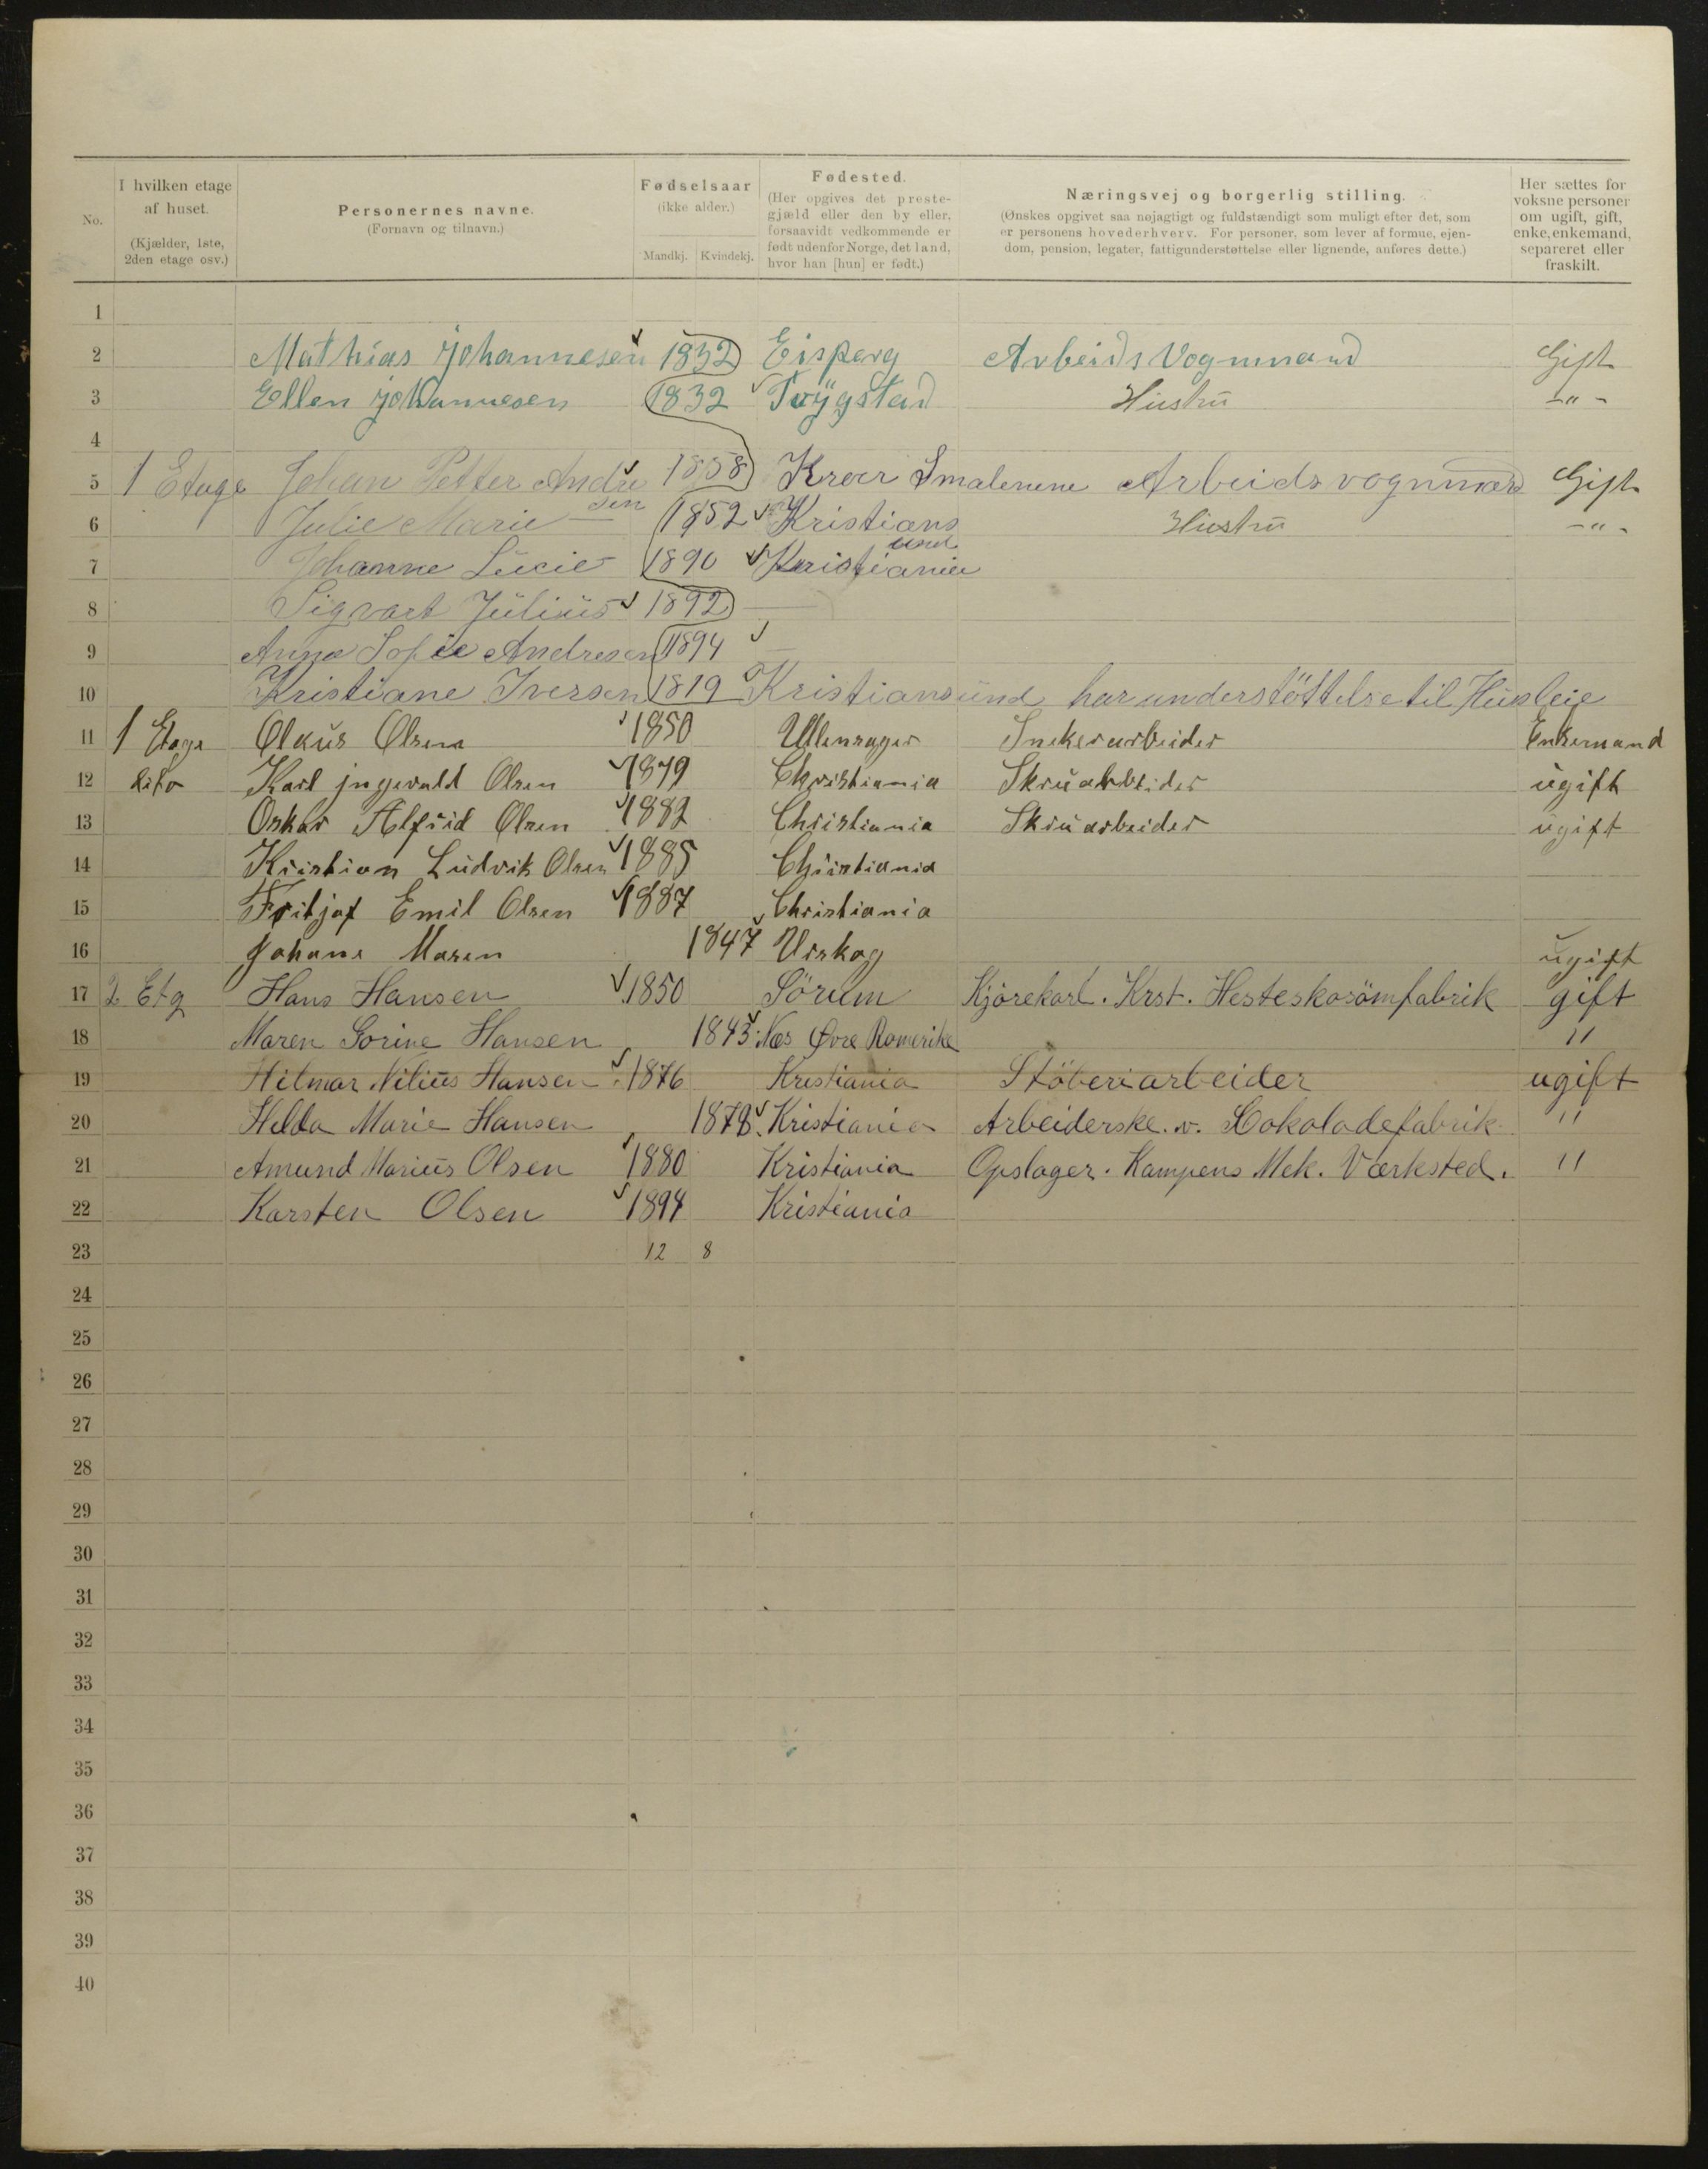 No.
I hvilken etage af huset. (Kjælder, 1ste, 2den etage osv.)
Personernes navne. (Fornavn og tilnavn.)
Fødselsaar (ikke alder.) Mandkj. Kvindekj.
Fødested. (Her opgives det prestegjæld eller den by eller, forsaavidt vedkommende er født udenfor Norge, det land, hvor han [hun] er født.)
Næringsvej og borgerlig stilling. (Ønskes opgivet saa nøjagtigt og fuldstændigt som muligt efter det, som er personens hovederhverv. For personer, som lever af formue, ejendom, pension, legater, fattigunderstøttelse eller lignende, anføres dette.)
Her sættes for voksne personer om ugift, gift, enke, enkemand, separeret eller fraskilt.
1
2 Mathias Johannesen 1832 Eisperg Arbeids Vognmand Gift
3 Ellen Johannesen 1832 Trygstad Hustru -"-
4
5 1 Etage Johan Petter Andresen 1858 Kroer Smalenene Arbeidsvognmand Gift
6 Julie Marie — 1852 Kristiansund Hustru -"-
7 Johanne Lucie 1890 Kristiania
8 Sigvart Julius 1892 —
9 Anna Sofie Andresen 1894 —
10 Kristiane Iversen 1819 Kristiansund har understöttelse til Husleie
11 1 Etage Olaus Olsen 1850 Ullensager Snekerarbeider Enkemand
12 dito Karl Jngevald Olsen 1879 Christiania Skruarbeider ugift
13 Oskar Alfrid Olsen 1882 Christiania Skruarbeider ugift
14 Kristian Ludvik Olsen 1885 Christiania
15 Fritjof Emil Olsen 1887 Christiania
16 Johane Maren 1847 Urskog ugift
17 2 Etg Hans Hansen 1850 Sörum Kjörekarl. Krst. Hesteskosömfabrik gift
18 Maren Sorine Hansen 1843 Nes Øvre Romerike "
19 Hilmar Nilius Hansen 1876 Kristiania Stöberiarbeider ugift
20 Helda Marie Hansen 1878 Kristiania Arbeiderske. v. Cokoladefabrik "
21 Amund Marius Olsen 1880 Kristiania Opslager. Kampens Mek. Værksted. "
22 Karsten Olsen 1894 Kristiania
23 12 8
24
25
26
27
28
29
30
31
32
33
34
35
36
37
38
39
40